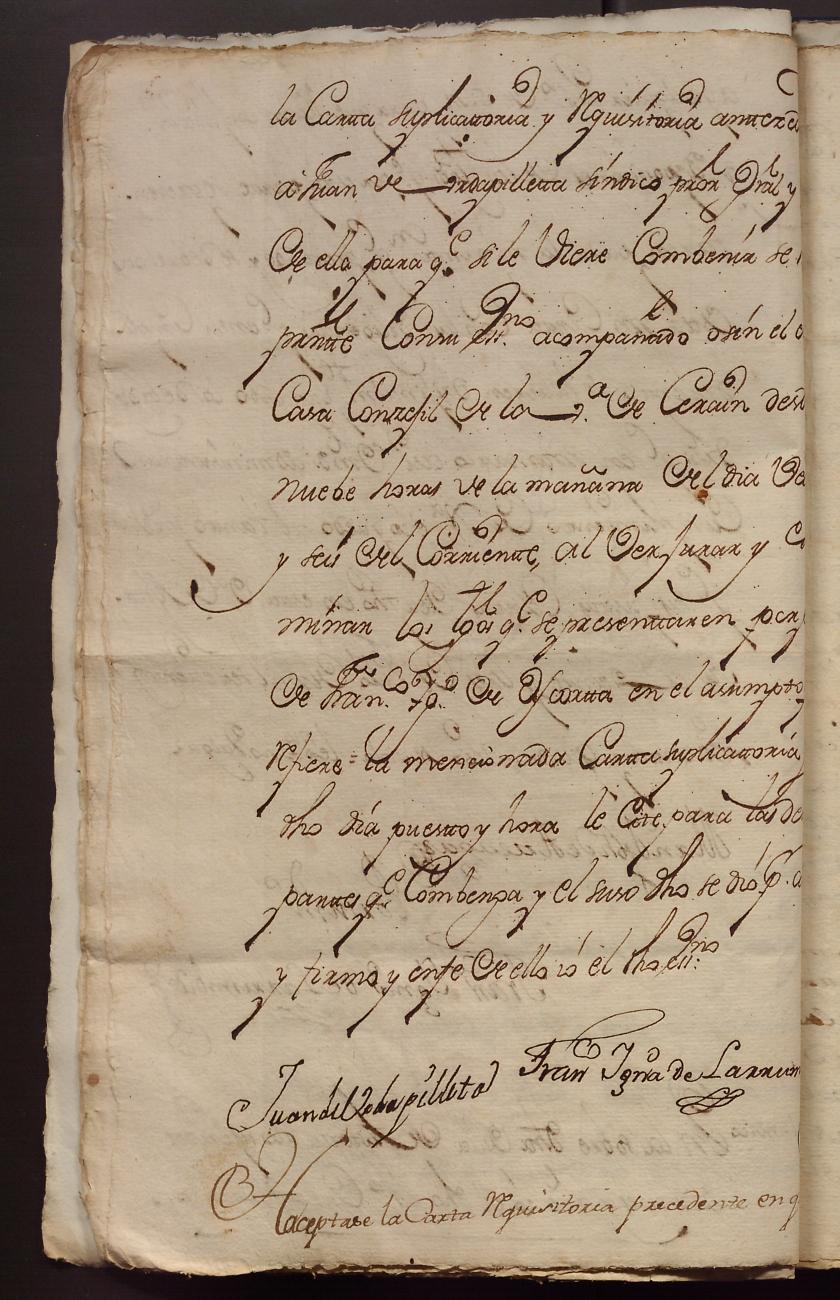 la Carta suplicattoria y Rquisitoria antteze
a Juan de ordapilletta síndico pror Gral y
de ella para q.e si le Viere Combenir se
prntte Conmi ess.no acompañado o sin el
Casa Conzejil de la v.a de Cerain desd
nuebe horas de la mañana del dia De
y seis del Corriente, al Ver Jurar y
minar los tgos q.e se presenttaren por
de Fran.co Ygn.o de Yscortta en el asumpto
Rfiere la mencionada Cartta suplicattoria
dho día puesto y hora le Cite para las de
parttes q.e Combenga y el suso dho se dió p.
y firmo y enfe de ello ió el dho ess.no
Juan de Vrdapilleta Fran.co Ygn.o de Larrum
Haceptase la Carta Rquisitoria precedente en q